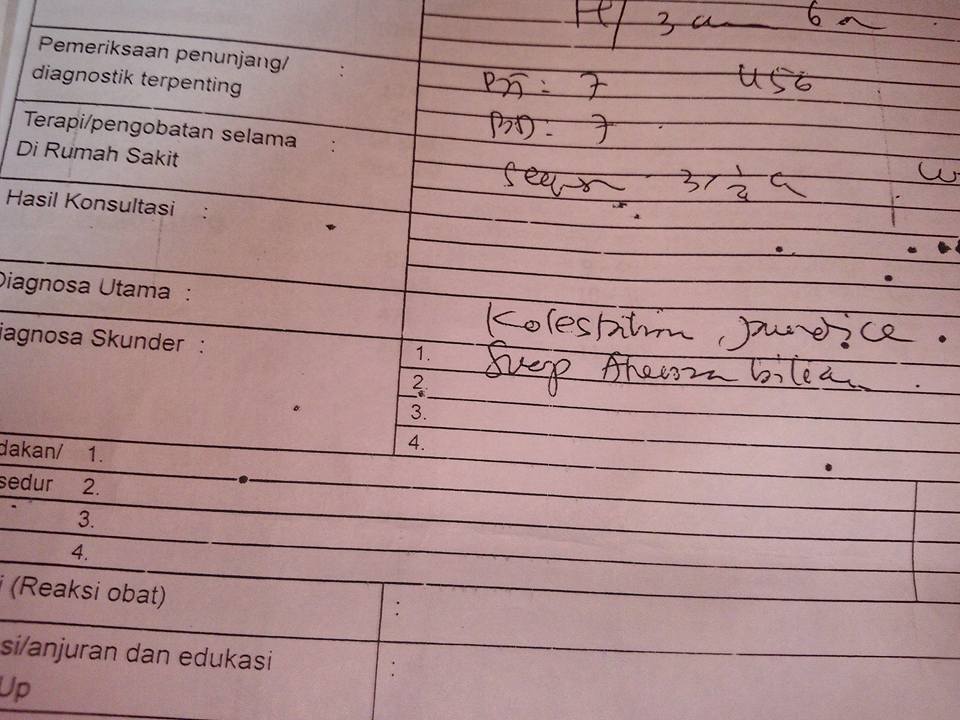 3 6
Pemeriksaan penunjang/ :
diagnostik terpenting
: 7 USG
Terapi/pengobatan selama :
: 7
Di Rumah Sakit
3x 1/2
Hasil Konsultasi :
Diagnosa Utama :
jaundice.
iagnosa Skunder :
1. Susp bilier
2.
3.
4.
dakan/ 1.
sedur 2.
3.
4.
i (Reaksi obat) :
si/anjuran dan edukasi :
Up